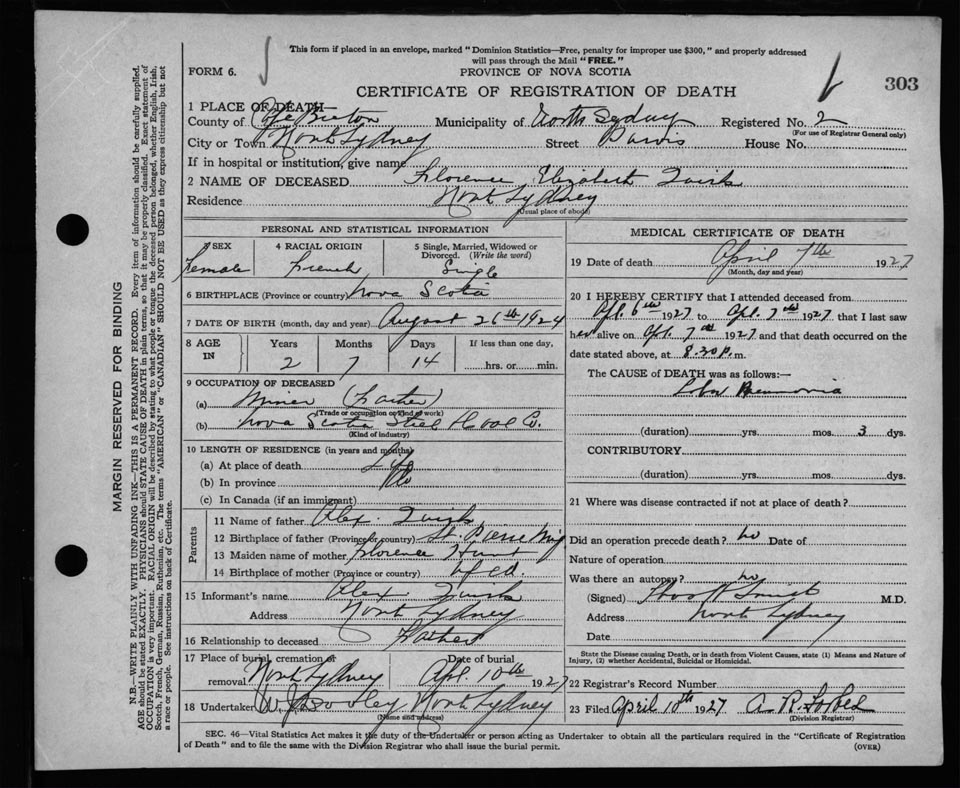 This form if placed in an envelope, marked "Dominion Statistics—Free, penalty for improper use $300," and properly addressed
will pass through the Mail "FREE."
FORM 6.
PROVINCE OF NOVA SCOTIA
303
CERTIFICATE OF REGISTRATION OF DEATH
1 PLACE OF DEATH—
County of Cape Breton Municipality of North Sydney Registered No. 2
(For use of Registrar General only)
City or Town North Sydney Street House No.
If in hospital or institution, give name
2 NAME OF DECEASED Florence Elizabeth Quirk
Residence North Sydney
(Usual place of abode)
PERSONAL AND STATISTICAL INFORMATION
3 SEX 4 RACIAL ORIGIN 5 Single, Married, Widowed or
Divorced. (Write the word)
Female French Single
6 BIRTHPLACE (Province or country) Nova Scotia
7 DATE OF BIRTH (month, day and year) August 26th 1924
8 AGE IN Years Months Days If less than one day,
2 7 14 hrs. or min.
9 OCCUPATION OF DECEASED
(a) Miner (Father)
(Trade or occupation or kind of work)
(b) Nova Scotia Steel & Coal Co.
(Kind of industry)
10 LENGTH OF RESIDENCE (in years and months)
(a) At place of death Life
(b) In province
(c) In Canada (if an immigrant)
Parents
11 Name of father Alex. Quirk
12 Birthplace of father (Province or country) St. Pierre Miq
13 Maiden name of mother Florence Hunt
14 Birthplace of mother (Province or country) Nfld.
15 Informant's name Alex Quirk
Address North Sydney
16 Relationship to deceased Father
17 Place of burial, cremation or Date of burial
removal North Sydney Apl. 10th 1927
18 Undertaker North Sydney
(Name and address)
MEDICAL CERTIFICATE OF DEATH
19 Date of death April 7th 1927
(Month, day and year)
20 I HEREBY CERTIFY that I attended deceased from
Apl. 6th 1927 to Apl. 7th 1927 that I last saw
her alive on Apl. 7th 1927 and that death occurred on the
date stated above, at 8.30 p. m.
The CAUSE of DEATH was as follows:—
Lobar Pneumonia
(duration) yrs. mos. 3 dys.
CONTRIBUTORY
(duration) yrs. mos. dys.
21 Where was disease contracted if not at place of death?
Did an operation precede death? no Date of
Nature of operation
Was there an autopsy? no
(Signed) M.D.
Address North Sydney
Date
State the Disease causing Death, or in death from Violent Causes, state (1) Means and Nature of
Injury, (2) whether Accidental, Suicidal or Homicidal.
22 Registrar's Record Number
23 Filed April 10th 1927 A. R. Forbes
(Division Registrar)
SEC. 46—Vital Statistics Act makes it the duty of the Undertaker or person acting as Undertaker to obtain all the particulars required in the "Certificate of Registration
of Death" and to file the same with the Division Registrar who shall issue the burial permit.
(OVER)
MARGIN RESERVED FOR BINDING
N.B.—WRITE PLAINLY WITH UNFADING INK—THIS IS A PERMANENT RECORD. Every item of information should be carefully supplied.
AGE should be stated EXACTLY. PHYSICIANS should STATE CAUSE OF DEATH in plain terms, so that it may be properly classified. Exact statement of
OCCUPATION is very important. RACIAL ORIGIN will be described by stating to what people or tongue the deceased person belonged, whether English, Irish,
Scotch, French, German, Russian, Ruthenian, etc. The terms "AMERICAN" or "CANADIAN" SHOULD NOT BE USED as they express citizenship but not
a race or people. See instructions on back of Certificate.